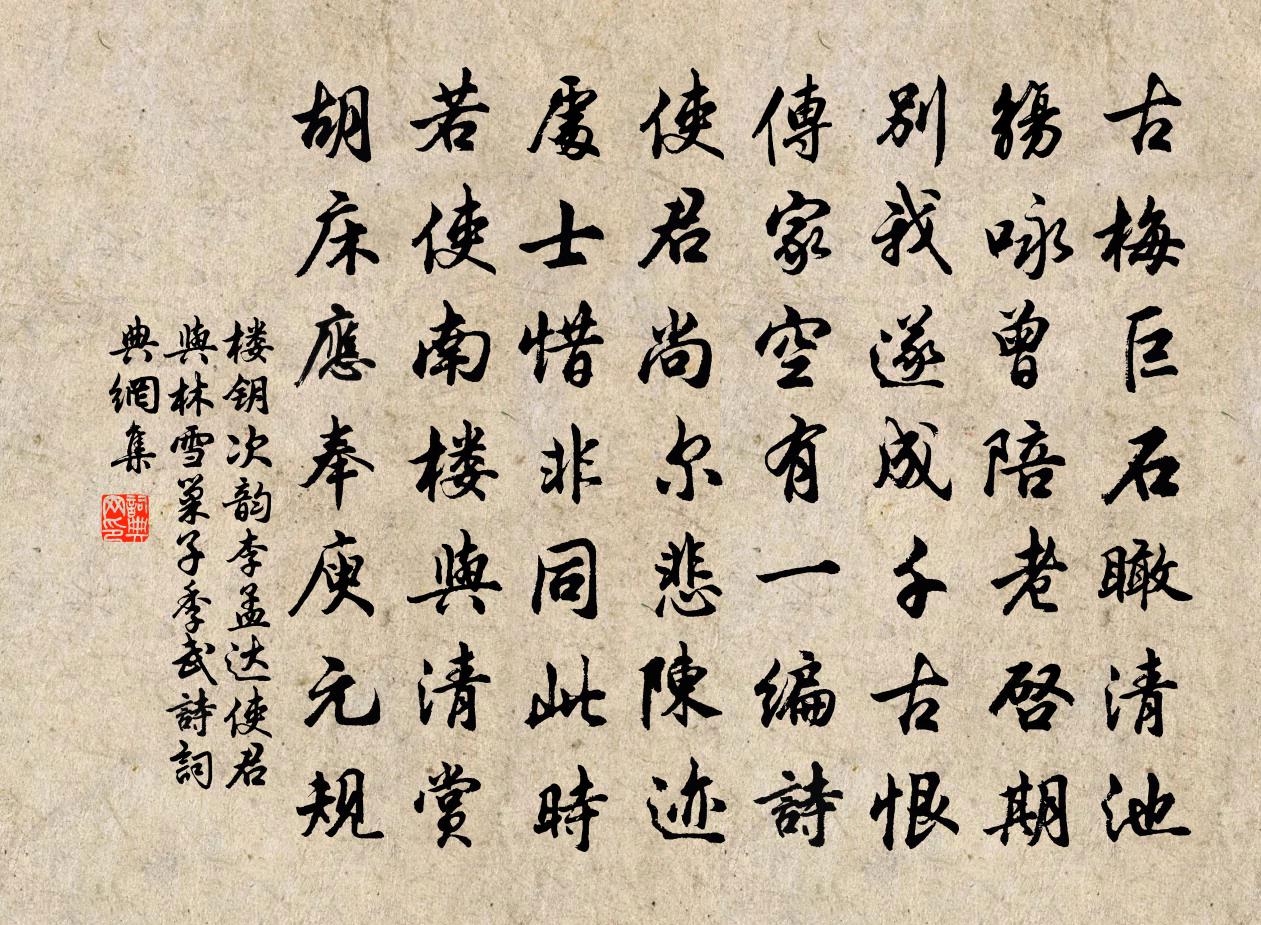 古梅巨石瞰清池
觞咏曾陪老啓期
别我遂成千古恨
傳家空有一编詩
使君尚尔悲陳迹
處士惜非同此時
若使南楼與清賞
胡床應奉庾元规
楼钥次韵李孟达使君
與林雪巢子季武詩詞
典網集
詞典
网印